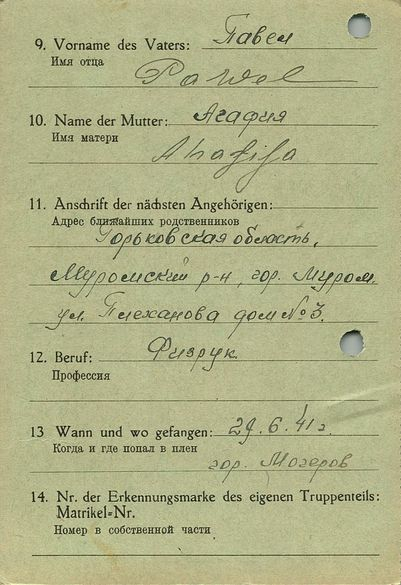 9. Vorname des Vaters: Павел
Имя отца
Pawel
10. Name der Mutter: Агафия
Имя матери
Ahafija
11. Anschrift der nächsten Angehörigen:
Адрес ближайших родственников
Горьковская область,
Муромский р-н, гор. Муром
ул. Плеханова дом № 3.
12. Beruf: Физрук.
Профессия
13 Wann und wo gefangen: 29.6.41 г.
Когда и где попал в плен
гор. Могеров
14. Nr. der Erkennungsmarke des eigenen Truppenteils:
Matrikel=Nr.
Номер в собственной части